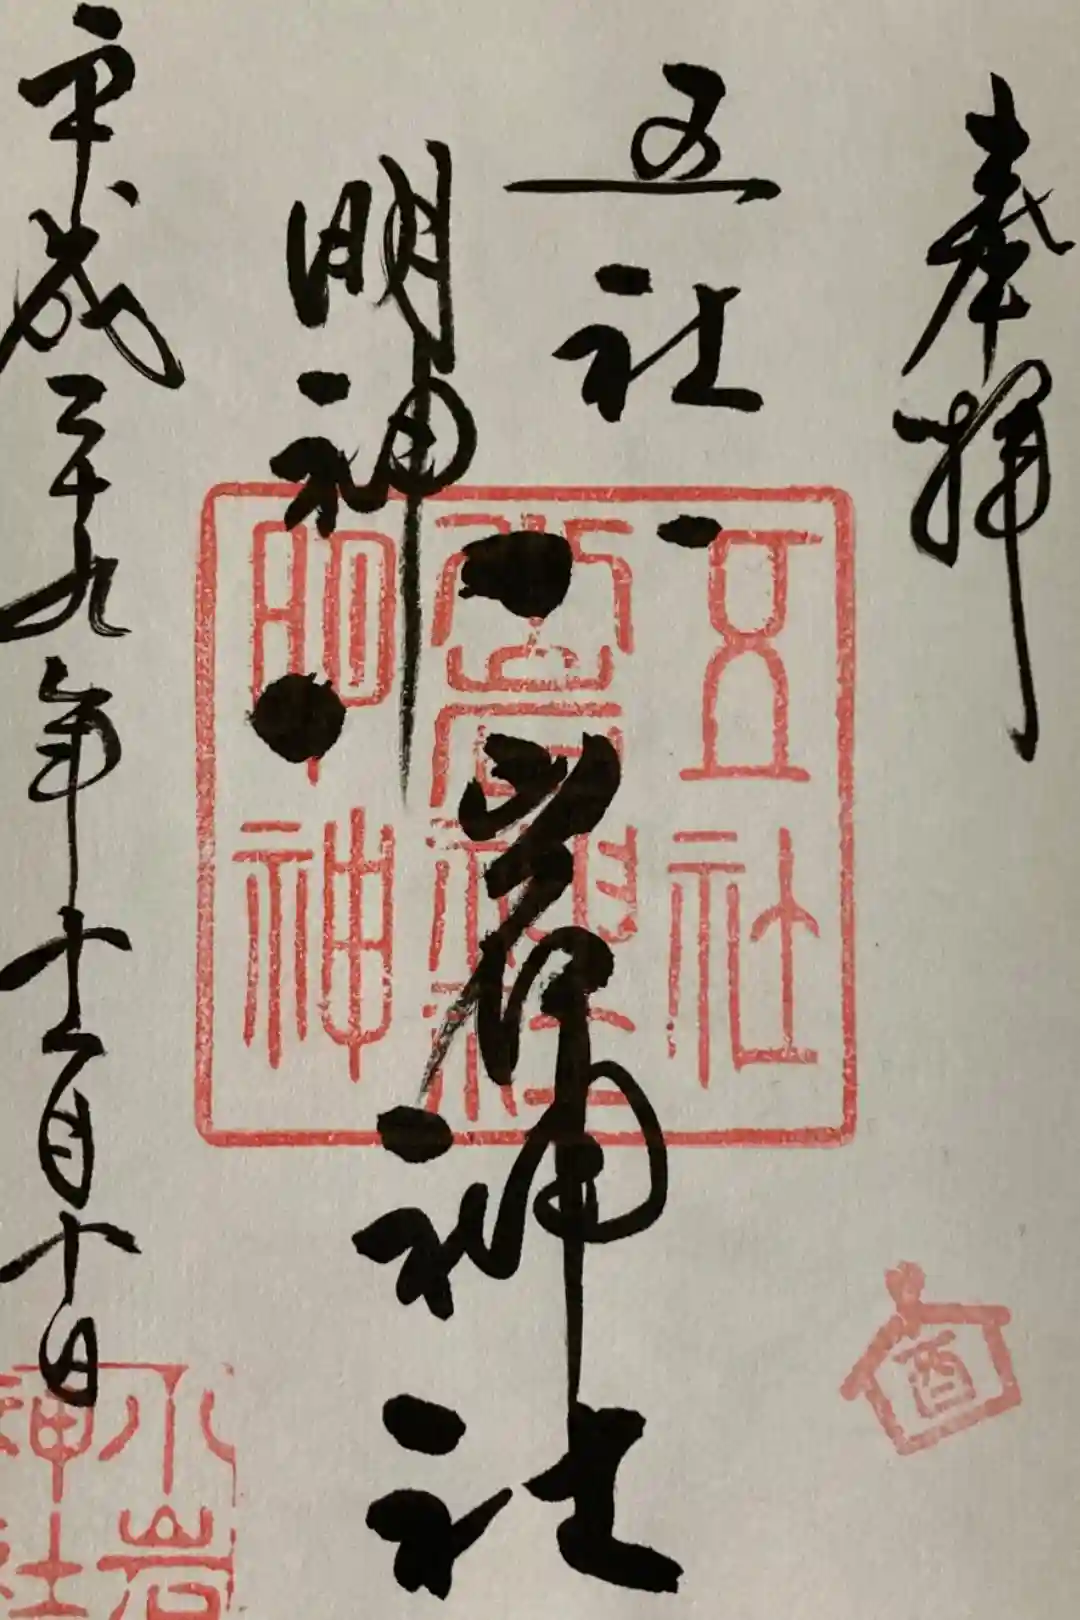 奉拝
五社
明神
小岩神社
平成二十九年十一月十日
五社
小岩神社
明神
酉
小岩
神社